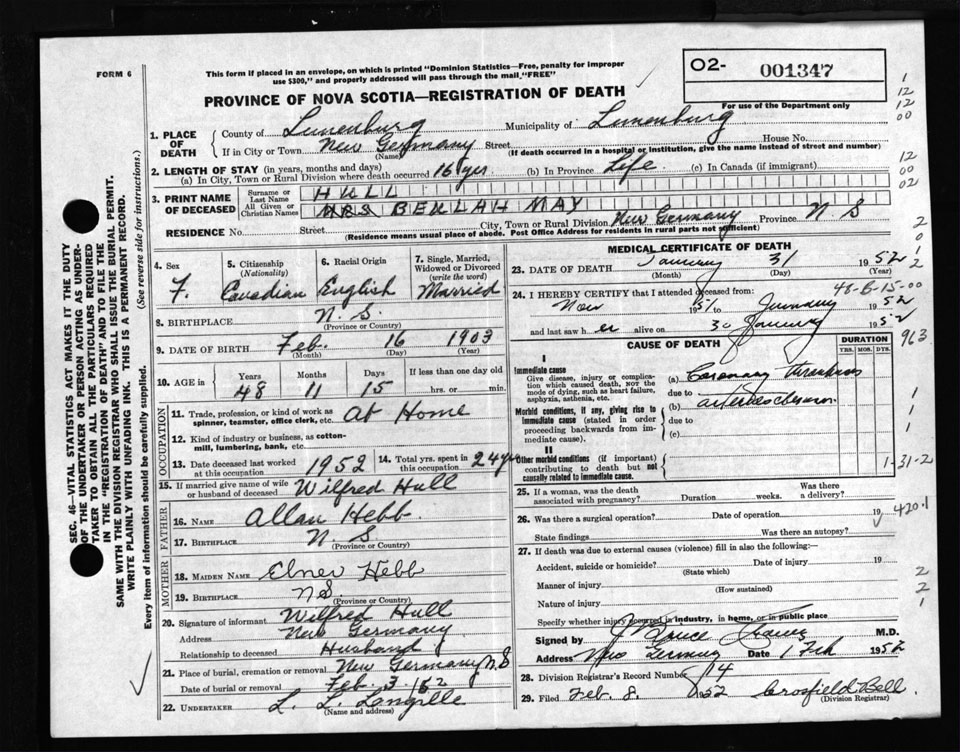 FORM 6
This form if placed in an envelope, on which is printed "Dominion Statistics—Free, penalty for improper
use $300," and properly addressed will pass through the mail "FREE"
O2- 001347
PROVINCE OF NOVA SCOTIA—REGISTRATION OF DEATH
For use of the Department only
1. PLACE OF DEATH
County of Lunenburg Municipality of Lunenburg
If in City or Town New Germany Street House No.
(Name) (If death occurred in a hospital or institution, give the name instead of street and number)
2. LENGTH OF STAY (in years, months and days)
(a) In City, Town or Rural Division where death occurred 16 yrs (b) In Province Life (c) In Canada (if immigrant)
3. PRINT NAME OF DECEASED
Surname or Last Name HULL
All Given or Christian Names MRS BEULAH MAY
RESIDENCE No. Street City, Town or Rural Division New Germany Province N S
(Residence means usual place of abode. Post Office Address for residents in rural parts not sufficient)
4. Sex F.
5. Citizenship (Nationality) Canadian
6. Racial Origin English
7. Single, Married, Widowed or Divorced (write the word) Married
8. BIRTHPLACE N. S.
(Province or Country)
9. DATE OF BIRTH Feb. 16 1903
(Month) (Day) (Year)
10. AGE in Years 48 Months 11 Days 15 If less than one day old hrs. or min.
OCCUPATION
11. Trade, profession, or kind of work as spinner, teamster, office clerk, etc. At Home
12. Kind of industry or business, as cotton-mill, lumbering, bank, etc.
13. Date deceased last worked at this occupation 1952
14. Total yrs. spent in this occupation 24 yrs
15. If married give name of wife or husband of deceased Wilfred Hull
FATHER
16. NAME Allan Hebb
17. BIRTHPLACE N S
(Province or Country)
MOTHER
18. MAIDEN NAME Hebb
19. BIRTHPLACE N S.
(Province or Country)
20. Signature of informant Wilfred Hull
Address New Germany
Relationship to deceased Husband
21. Place of burial, cremation or removal New Germany N. S
Date of burial or removal Feb. 3. / 52
22. UNDERTAKER L. L. Langille
(Name and address)
MEDICAL CERTIFICATE OF DEATH
23. DATE OF DEATH January 31 1952
(Month) (Day) (Year)
48-6-15-00
24. I HEREBY CERTIFY that I attended deceased from:
Nov 1951 to January 1952
and last saw her alive on 30 January 1952
CAUSE OF DEATH
DURATION
YRS. MOS. DYS.
963
I
Immediate cause
Give disease, injury or complication which caused death, NOT the mode of dying, such as heart failure, asphyxia, asthenia, etc.
(a) Coronary thrombosis
due to
Morbid conditions, if any, giving rise to immediate cause (stated in order proceeding backwards from immediate cause).
(b)
due to
(c)
II
Other morbid conditions (if important) contributing to death but not causally related to immediate cause.
1-31-2
25. If a woman, was the death associated with pregnancy? Duration weeks. Was there a delivery?
26. Was there a surgical operation? Date of operation 19
420.1
State findings Was there an autopsy?
27. If death was due to external causes (violence) fill in also the following:
Accident, suicide or homicide? Date of injury 19
(State which)
Manner of injury
(How sustained)
Nature of injury
Specify whether injury occurred in industry, in home, or in public place
Signed by M.D.
Address New Germany Date 1 Feb 1952
28. Division Registrar's Record Number 14
29. Filed Feb. 8. 1952 Crosfield Bell.
(Division Registrar)
SEC. 46—VITAL STATISTICS ACT MAKES IT THE DUTY
OF THE UNDERTAKER OR PERSON ACTING AS UNDER-
TAKER TO OBTAIN ALL THE PARTICULARS REQUIRED
IN THE "REGISTRATION OF DEATH" AND TO FILE THE
SAME WITH THE DIVISION REGISTRAR WHO SHALL ISSUE THE BURIAL PERMIT.
WRITE PLAINLY WITH UNFADING INK. THIS IS A PERMANENT RECORD.
Every item of information should be carefully supplied. (See reverse side for instructions.)
1
12
12
00
12
00
02
2
0
1
2
1
1
1
2
2
1